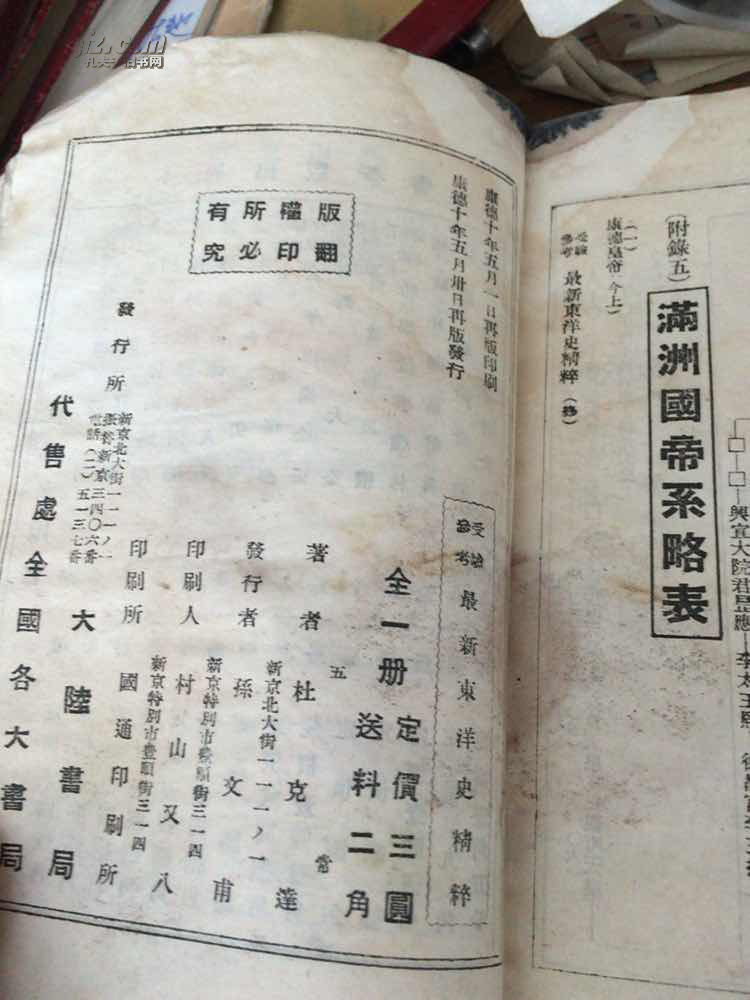 孔夫子旧书网
(附錄五)
滿洲國帝系略表
(一)
康德皇帝(今上)
受驗
參考 最新東洋史精粹 (終)
興宣大院君
版權所有
翻印必究
康德十年五月一日再版印刷
康德十年五月卅日再版發行
受驗
參考 最新東洋史精粹
全一册 定價三圓
送料二角
著者 杜克達
新京北大街一一一ノ一
發行者 孫文甫
新京特別市豊順街三一四
印刷人 村山又八
新京特別市豊順街三一四
印刷所 國通印刷所
發行所 大陸書局
新京北大街一一一ノ一
振替新京三四〇六番
電話(二)五一三七番
代售處 全國各大書局